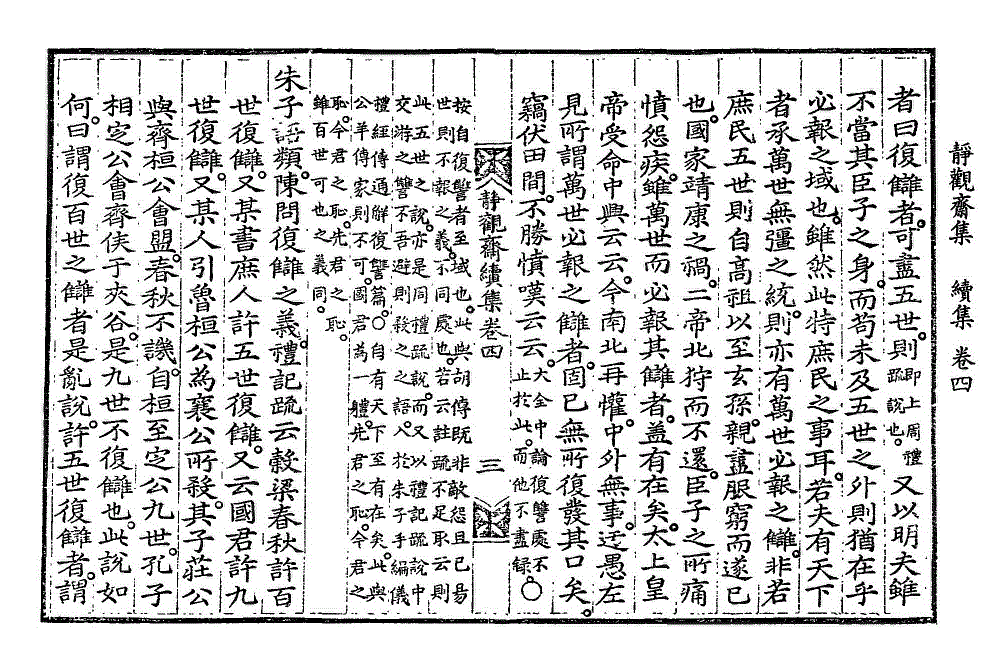 靜觀齋集　續集　卷四
者曰復讎者可盡五世則即上周禮疏說也又以明夫雖
不當其臣子之身而苟未及五世之外則猶在乎
必報之域也雖然此特庶民之事耳若夫有天下
者承萬世無彊之統則亦有萬世必報之讎非若
庶民五世則自高祖以至玄孫親盡服窮而遂已
也國家靖康之禍二帝北狩而不還臣子之所痛
憤怨疾雖萬世而必報其讎者盖有在矣太上皇
帝受命中興云云今南北再懽中外無事迂愚左
見所謂萬世必報之讎者固已無所復發其口矣
竊伏田間不勝憤嘆云云大全中論復讐處不止於此而他不盡録○
靜觀齋續集卷四　三
按自復讐者至域也此與胡傳既非敵怨且已易
世則不報之義不同處也若云註疏不足取云則
此五世之說亦是周禮疏說而又以禮記疏說中
交游之讐不吾避則殺之之語入於朱子手編儀
禮經傳通解復讐篇○自有天下至有在矣此與
公羊傳家則不可國君為一軆先君之恥今君之
恥今君之恥先君之恥
雖百世可也之義同
朱子語類陳問復讎之義禮記疏云穀梁春秋許百
世復讎又某書庶人許五世復讎又云國君許九
世復讎又某人引魯桓公為襄公所殺其子莊公
與齊桓公會盟春秋不譏自桓至定公九世孔子
相定公會齊侯于夾谷是九世不復讎也此說如
何曰謂復百世之讎者是亂說許五世復讎者謂